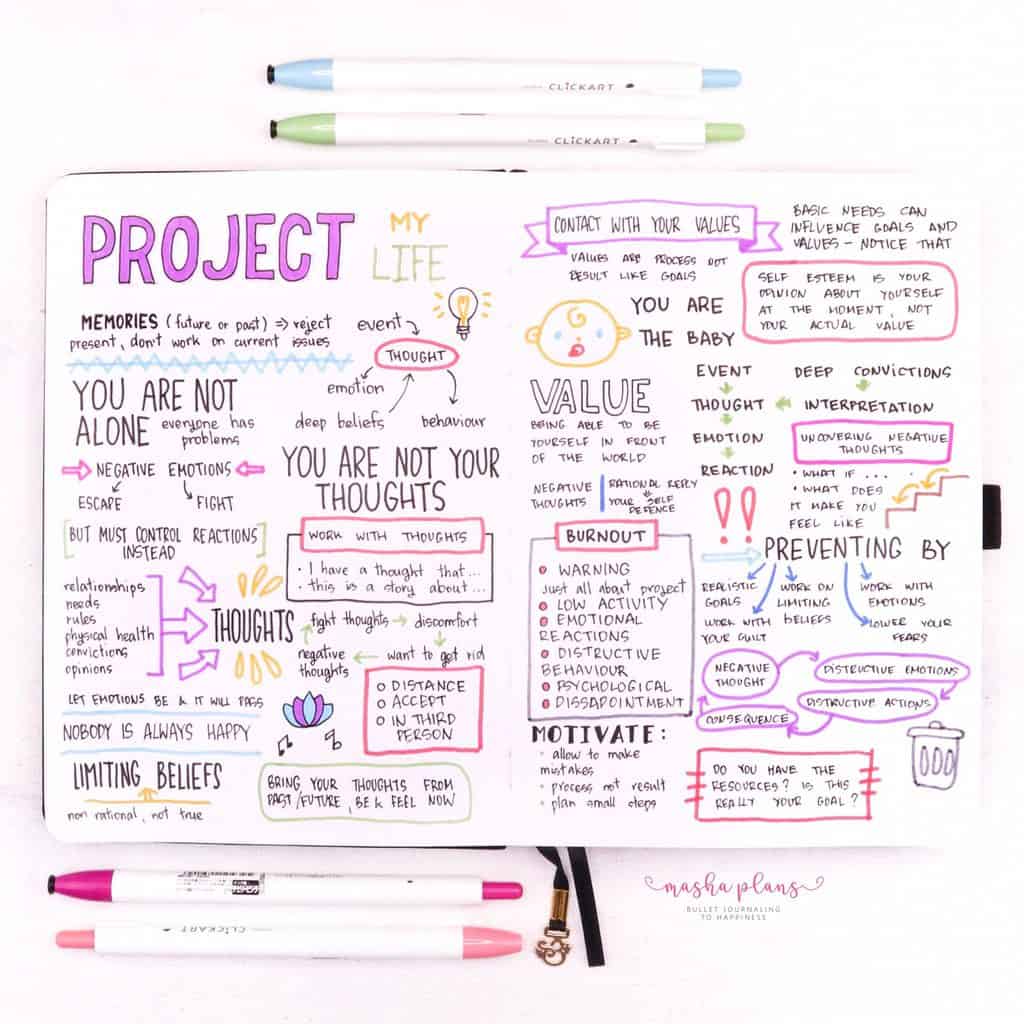 CLICKART
CLICKART
PROJECT
MY
LIFE
MEMORIES (future or past) => reject
present, don't work on current issues
event
THOUGHT
emotion
deep beliefs
behaviour
YOU ARE NOT
ALONE everyone has
problems
NEGATIVE EMOTIONS
ESCAPE
FIGHT
[BUT MUST CONTROL REACTIONS
INSTEAD]
YOU ARE NOT YOUR
THOUGHTS
WORK WITH THOUGHTS
• I have a thought that...
• this is a story about...
relationships
needs
rules
physical health
convictions
opinions
THOUGHTS
fight thoughts → discomfort
negative
thoughts ← want to get rid
LET EMOTIONS BE & IT WILL PASS
NOBODY IS ALWAYS HAPPY
DISTANCE
ACCEPT
IN THIRD
PERSON
LIMITING BELIEFS
non rational, not true
BRING YOUR THOUGHTS FROM
PAST/FUTURE, BE & FEEL NOW
CONTACT WITH YOUR VALUES
VALUES ARE PROCESS NOT
RESULT LIKE GOALS
BASIC NEEDS CAN
INFLUENCE GOALS AND
VALUES – NOTICE THAT
SELF ESTEEM IS YOUR
OPINION ABOUT YOURSELF
AT THE MOMENT, NOT
YOUR ACTUAL VALUE
YOU ARE
THE BABY
VALUE
BEING ABLE TO BE
YOURSELF IN FRONT
OF THE WORLD
NEGATIVE
THOUGHTS
RATIONAL REPLY
YOUR SELF
DEFENCE
EVENT
THOUGHT
EMOTION
REACTION
DEEP CONVICTIONS
INTERPRETATION
UNCOVERING NEGATIVE
THOUGHTS
• WHAT IF ....
• WHAT DOES
IT MAKE YOU
FEEL LIKE
!!
BURNOUT
WARNING
Just all about project
LOW ACTIVITY
EMOTIONAL
REACTIONS
DISTRUCTIVE
BEHAVIOUR
PSYCHOLOGICAL
DISSAPOINTMENT
PREVENTING BY
REALISTIC
GOALS
WORK WITH
YOUR GUILT
WORK ON
LIMITING
BELIEFS
WORK WITH
EMOTIONS
LOWER YOUR
FEARS
NEGATIVE
THOUGHT
DISTRUCTIVE EMOTIONS
DISTRUCTIVE ACTIONS
CONSEQUENCE
MOTIVATE:
• allow to make
mistakes
• process not result
• plan small steps
DO YOU HAVE THE
RESOURCES? IS THIS
REALLY YOUR GOAL?
CLICKART
masha plans
BULLET JOURNALING
TO HAPPINESS